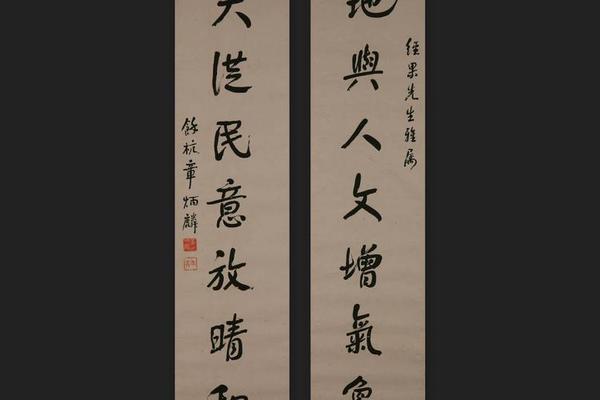 經果先生雅屬
地與人文增氣象
天從民意放晴和
餘杭章炳麟